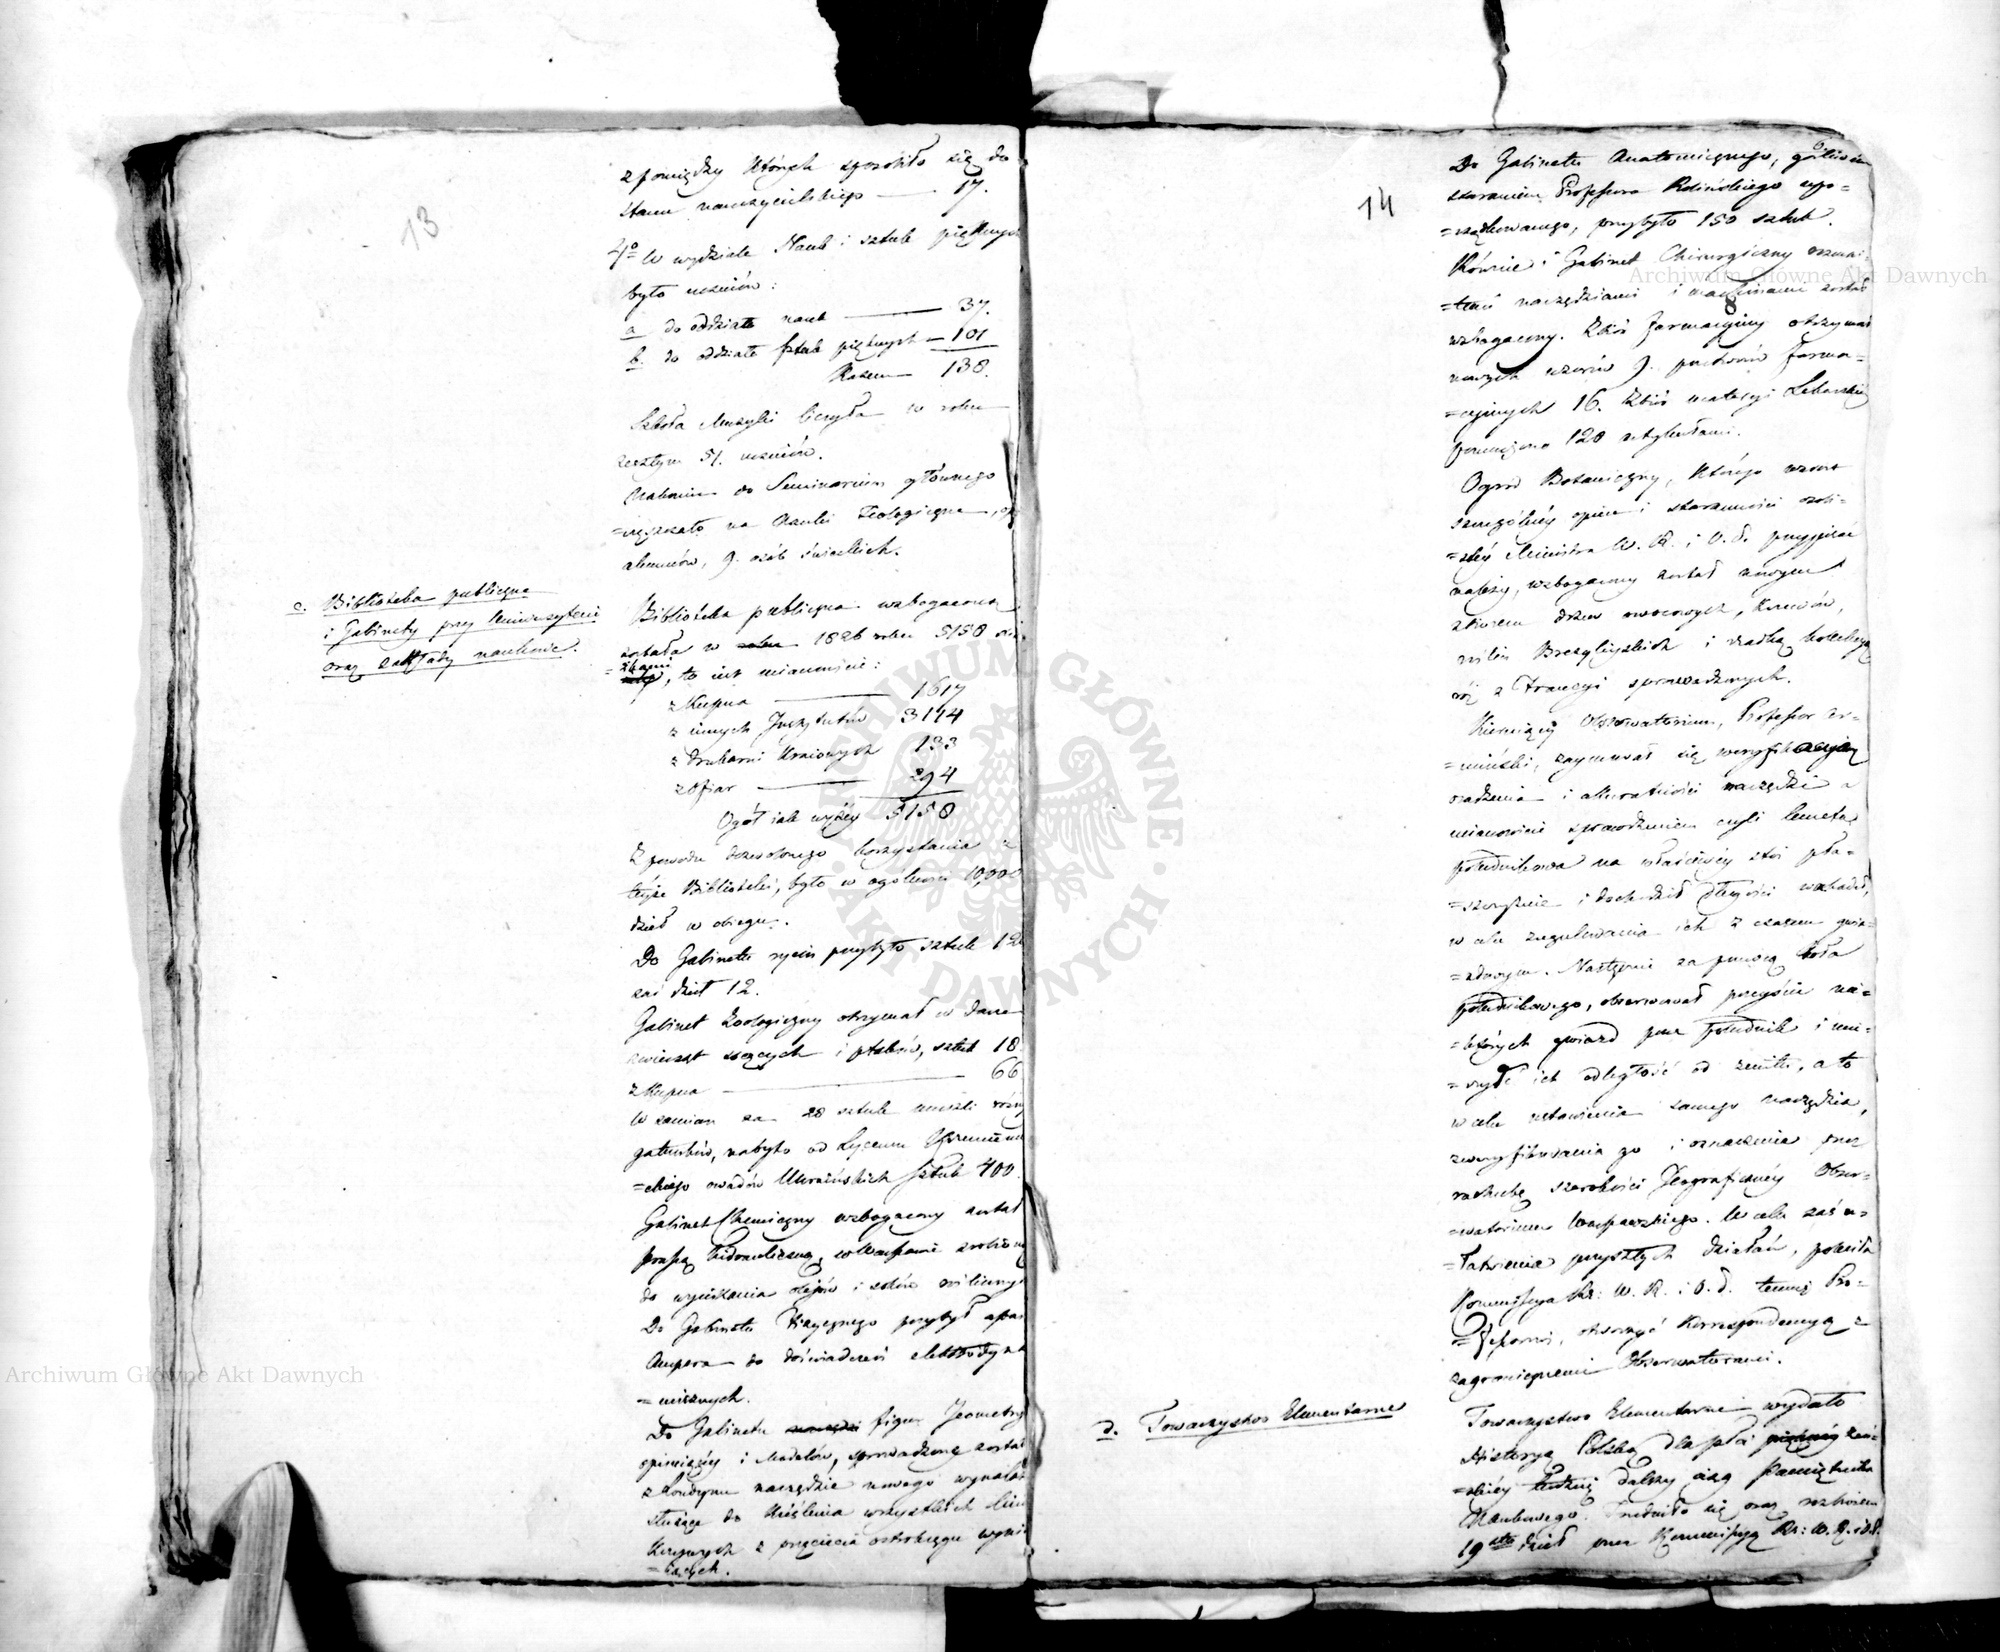 13
z pomiędzy których sposobiło się do
stanu nauczycielskiego — 17.
4o W wydziale Nauk i sztuk pięknych
było uczniów:
a do oddziału nauk — 37.
b. do oddziału sztuk pięknych — 101
Razem — 138.
Szkoła Muzyki liczyła w roku
zeszłym 51. uczniów.
do Seminarium głównego
=częszczało na Nauki Teologiczne,
alumnów, 9. osób świeckich.
c. Biblioteka publiczna
i Gabinety przy Uniwersytecie
oraz zakłady naukowe.
Biblioteka publiczna wzbogacona
została w roku 1826 roku 5158
to jest mianowicie:
z kupna — 1617
z innych Instytutów 3114
z drukarni kraiowych 133
z ofiar — 294
Ogół iak wyżéy 5158
Z powodu dozwolonego korzystania z
téyże Biblioteki, było w ogólności 10,000
dzieł w obiegu.
Do Gabinetu rycin przybyło sztuk 12
zaś dzieł 12.
Gabinet Zoologiczny otrzymał w darze
zwierząt ssących i ptaków, sztuk 18
z kupna — 66
W zamian za 28 sztuk muszli różn
gatunków, nabyto od Lyceum Krzemienie
=ckiego owadów Ukraińskich sztuk 400.
Gabinet Chemiczny wzbogacony został
prassą hidrauliczną, w Warszawie zrobioną
do wyciskania oleiów i soków roślinnych
Do Gabinetu Fizycznego przybył apar
Ampera do doświadczeń elektrodyna
=micznych.
Do Gabinetu narzędzi figur Jeometryi
opisuiącéy i Modelów, sprowadzone został
z Londynu narzędzie nowego wynalaz
służące do kréślenia wszystkich linii
krzywych z przecięcia ostrokręgu wyni
=kaiących.
14
Do Gabinetu Anatomicznego, gorliwém
staraniem Professora Rolińskiego upo=
=rządkowanego, przybyło 150 sztuk.
Równie i Gabinet Chirurgiczny rozmai=
=temi narzędziami i machinami został
8
wzbogacony. Zbiór farmacyiny otrzymał
nowych wzorów 9. putworów farma=
=cyinych 16. Zbiór materyi Lekarskiéy
pomnożono 120 artykułami.
Ogród Botaniczny, którego wzrost
szczególnéy opiece i staranności osobi=
=stéy Ministra W. R. i O. P. przypisać
należy, wzbogacony został nowym
zbiorem drzew owocowych, krzewów,
roślin Brezyliyskich i rzadką kollekcyą
róż z Francyi sprowadzonych.
Kieruiący Obserwatorium, Professor Ar=
=miński, zaymował się weryfikacyią
osadzenia i akuratności narzędzi a
mianowicie sprawdzeniem czyli luneta
południkowa na właściwéy stoi pła=
=szczyźnie i dochodził długości wahadeł,
w celu zregulowania ich z czasem gwia=
=zdowym. Następnie za pomocą koła
południkowego, obserwował przeyście nie=
=których gwiazd przez południk i mie=
=rzył ich odległość od zenitu, a to
w celu ustawienia samego narzędzia,
zweryfikowania go i oznaczenia przez
rachubę szerokości Jeograficznéy Obser=
=watorium Warszawskiego. W celu zaś u=
=łatwienia przyszłych działań, poleciła
Kommissya Rz: W. R. i O. P. temuż Pro=
=fessorowi, otworzyć korrespondencyą z
zagranicznemi Obserwatoriami.
d. Towarzystwo Elementarne
Towarzystwo Elementarne wydało
Historyą Polską dla płci żeń=
=skiéy tudzież dalszy ciąg Pamiętnika
Naukowego. Trudniło się oraz rozbiorem
19stu dzieł przez Kommissyą Rz: W. R. i O. P.